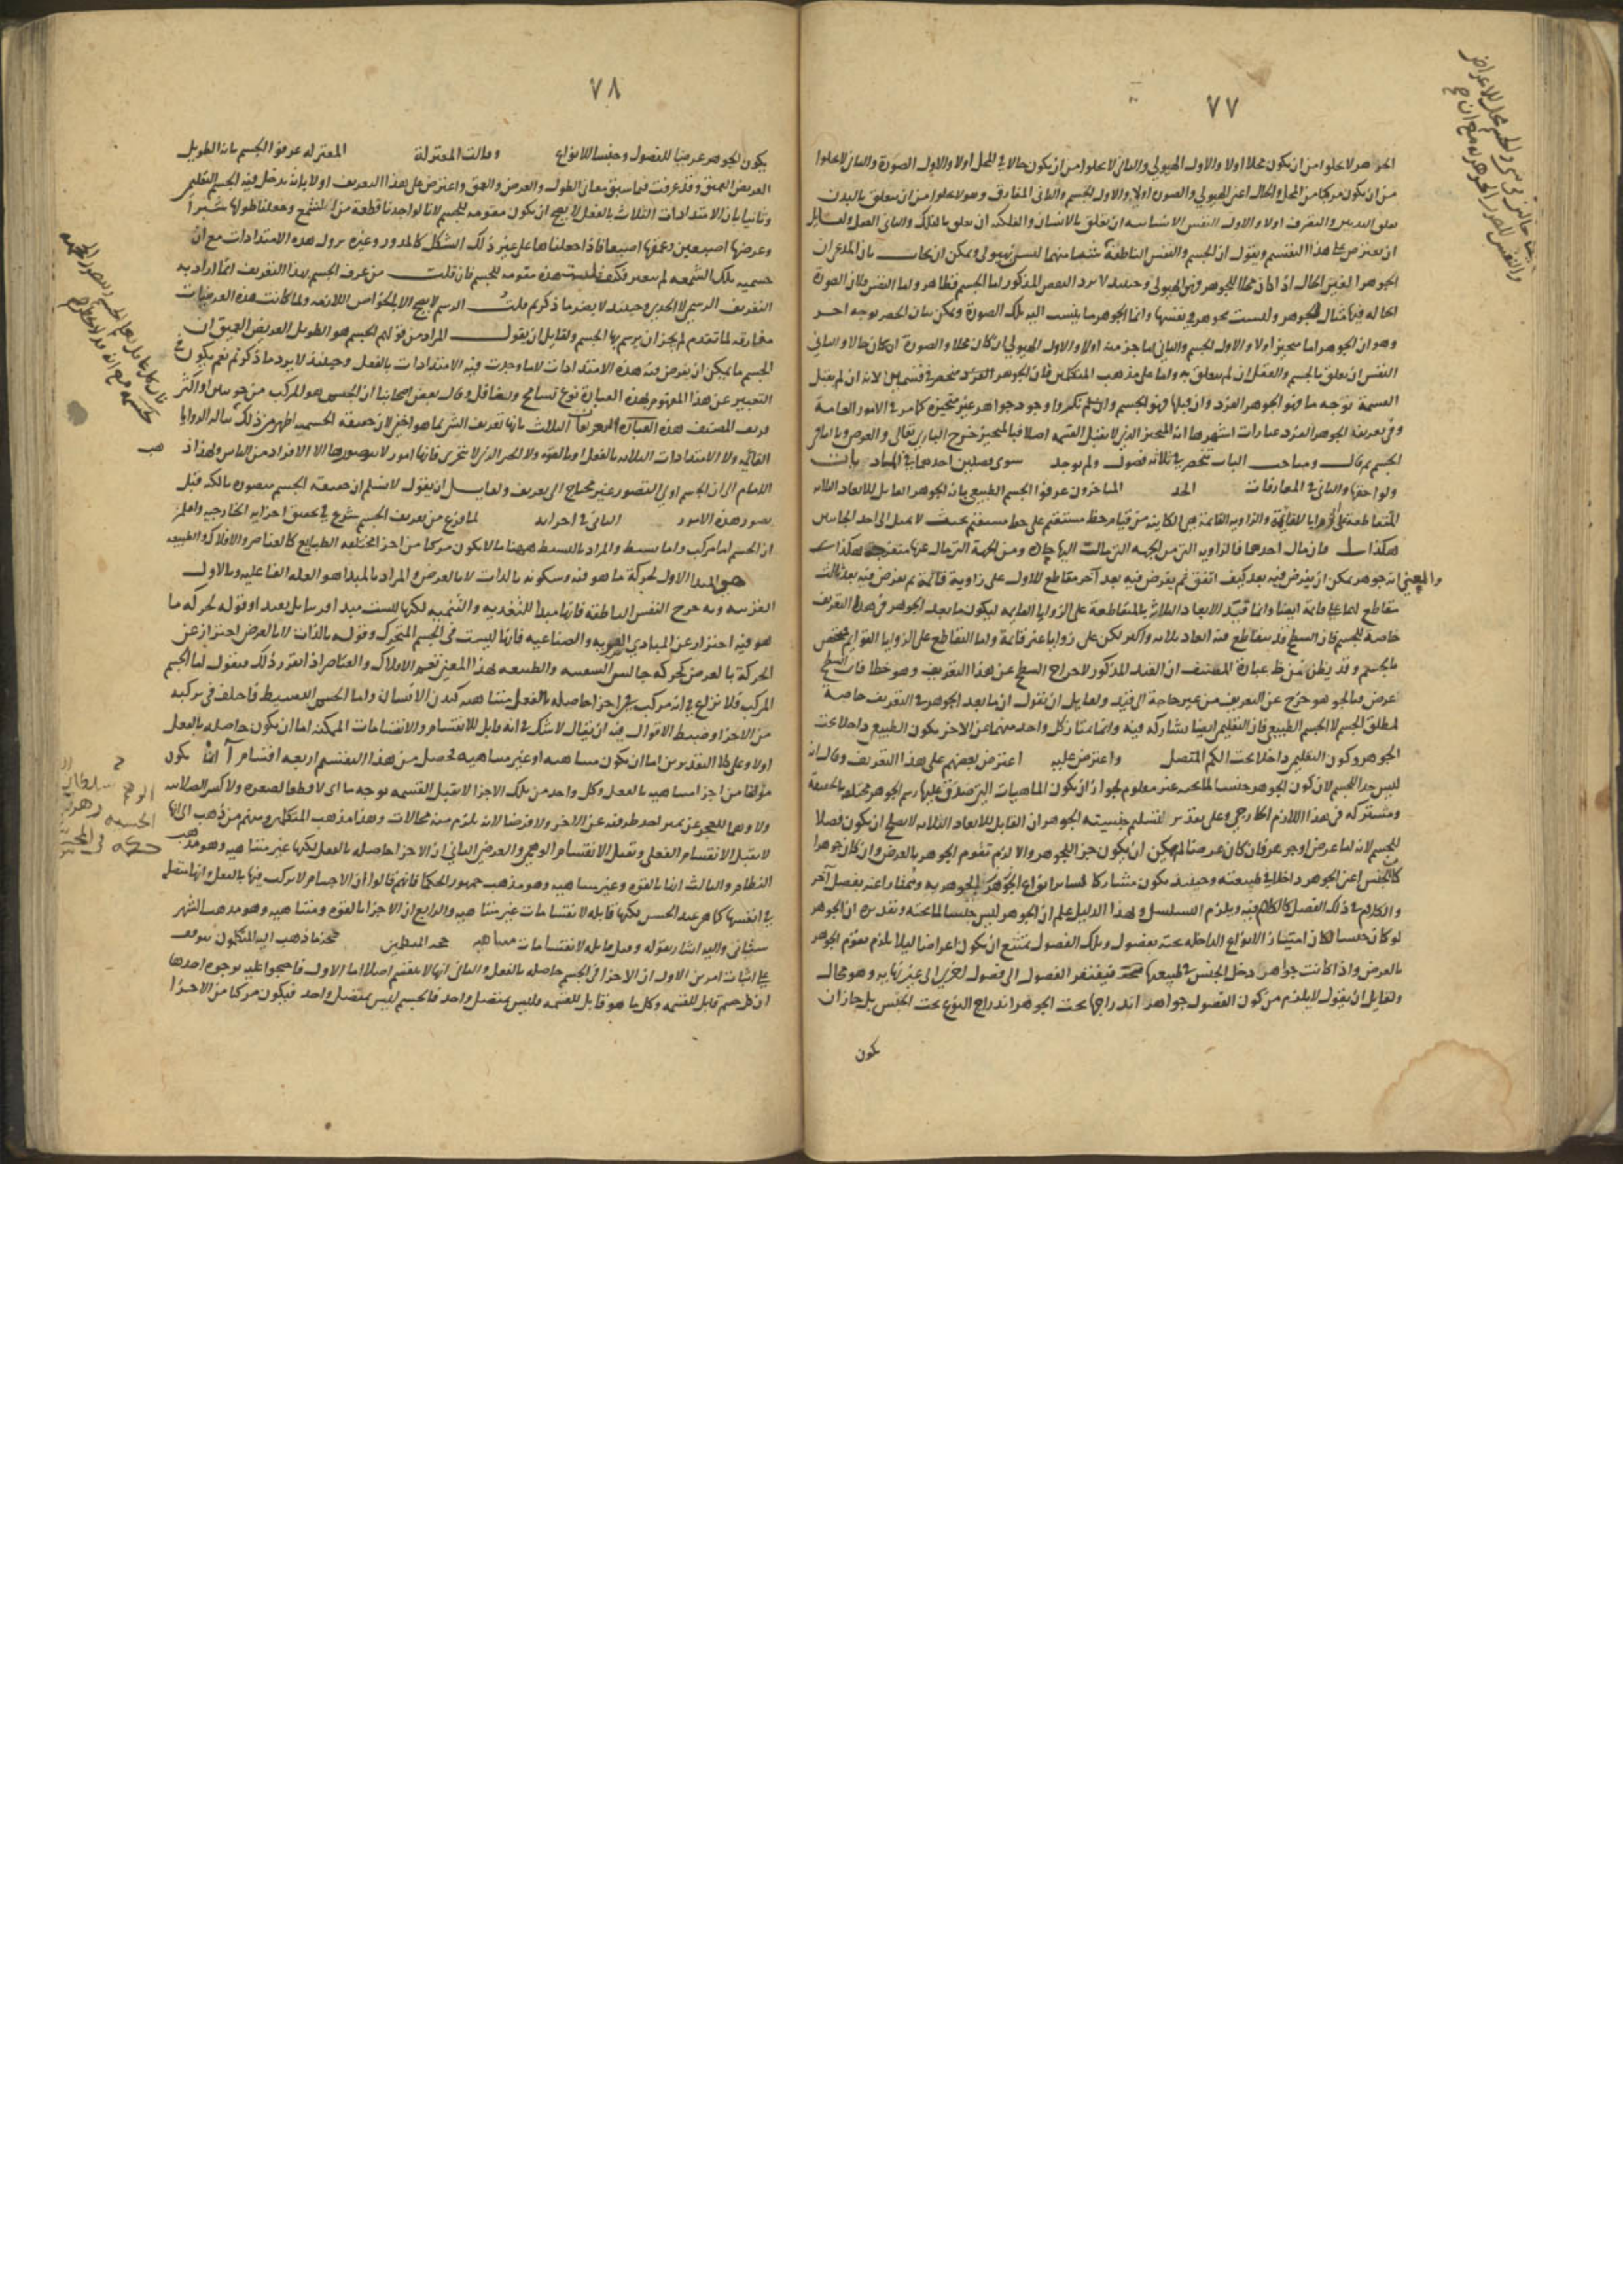 ٧٧
الجوهر لا يخلو من ان يكون محلا اولا والاول الهيولي والثاني لا يخلو من ان يكون حالا في المحل اولا والاول الصورة والثاني لا يخلو
من ان يكون مركبا من المحل والحال اعني الهيولي والصورة اولا والاول الجسم والثاني المفارق وهو لا يخلو من ان يتعلق بالبدن
تعلق التدبير والتصرف اولا والاول النفس الانسانية ان تعلق بالانسان والفلكية ان تعلق بالفلك والثاني العقل ولقايل
ان يعترض على هذا التقسيم ويقول ان الجسم والنفس الناطقة منهما ليس بهيولي ويمكن ان يجاب بان المدعى ان
الجوهر الغير الحال اذا كان محلا للجوهر فهو الهيولي وحينئذ لا يرد النقض المذكور اما الجسم فظاهر واما النفس فلان الصورة
الحالة فيها مثال الجوهر وليست بجوهر في نفسها وانما الجوهر ما ينسب اليه تلك الصورة ويمكن بيان الحصر بوجه اخر
وهو ان الجوهر اما متحيز اولا والاول الجسم والثاني اما جزء منه اولا والاول الهيولي ان كان محلا والصورة ان كان حالا والثاني
النفس ان تعلق بالجسم والعقل ان لم يتعلق به واما على مذهب المتكلمين فان الجوهر الفرد منحصر في قسمين لانه ان لم يقبل
القسمة بوجه ما فهو الجوهر الفرد وان قبلها فهو الجسم وان لم ينكروا وجود جواهر غير متحيزة كما مر في الامور العامة
وفي تعريف الجوهر الفرد عبارات اشهرها انه المتحيز الذي لا يقبل القسمة اصلا فبالمتحيز خرج الباري تعالى والعرض وبالباقي
الجسم ثم قال ومباحث الباب تنحصر في ثلاثة فصول ولم يوجد سوى فصلين احدهما في المباد
ولواحقها والثاني في المفارقات الحد المتاخرون عرفوا الجسم الطبيعي بانه الجوهر القابل للابعاد الثلاثة
المتقاطعة على الزوايا القائمة والزاوية القائمة هي الكاينة من قيام خط مستقيم على خط مستقيم بحيث لا يميل الى احد الجانبين
هكذا فان مال احدهما فالزاوية التي من الجهة التي مالت اليها حادة ومن الجهة التي مال عنها منفرجة هكذا
والمعني انه جوهر يمكن ان يفرض فيه بعد كيف اتفق ثم يفرض فيه بعد آخر مقاطع للاول على زاوية قائمة ثم يفرض فيه بعد ثالث
مقاطع لهما على قائمة ايضا وانما قيد الابعاد الثلاثة بالمتقاطعة على الزوايا القايمة ليكون ما بعد الجوهر في هذا التعريف
خاصة للجسم فان السطح قد يتقاطع فيه ابعاد ثلاثة واكثر لكن على زوايا غير قائمة واما التقاطع على الزوايا القوائم فيختص
بالجسم وقد يظن من ظ عبارة المصنف ان القيد المذكور لاخراج السطح عن هذا التعريف وهو خطا فان السطح
عرض فبالجوهر خرج عن التعريف من غير حاجة الى قيد ولقايل ان يقول ان ما بعد الجوهر في التعريف خاصة
لمطلق الجسم لا الجسم الطبيعي فان التعليمي ايضا يشاركه فيه وانما يمتاز كل واحد منهما عن الاخر بكون الطبيعي داخلا تحت
الجوهر وكون التعليمي داخلا تحت الكم المتصل واعترض عليه اعترض بعضهم على هذا التعريف وقال انه
ليس حدا للجسم لان كون الجوهر جنسا لما تحته غير معلوم لجواز ان يكون الماهيات التي صدق عليها رسم الجوهر مختلفة بالحقيقة
ومشتركة في هذا اللازم الخارجي وعلى تقدير تسليم جنسيته الجوهر ان القابل للابعاد الثلاثة لا يصلح ان يكون فصلا
للجسم لانه اما عرض او جوهر فان كان عرضا لم يمكن ان يكون جزءا للجوهر والا لزم تقوم الجوهر بالعرض وان كان جوهرا
كان الجنس اعني الجوهر داخلا في طبيعته وحينئذ يكون مشاركا لساير انواع الجوهر في الجوهرية وممتازا عنه بفصل آخر
والكلام في ذلك الفصل كالكلام فيه ويلزم التسلسل ولهذا الدليل علم ان الجوهر ليس جنسا لما تحته وتقديره ان الجوهر
لو كان جنسا لكان امتياز الانواع الداخلة تحته بفصول وتلك الفصول يمتنع ان يكون اعراضا ليلا يلزم تقوم الجوهر
بالعرض واذا كانت جواهر دخل الجنس في طبيعتها فيفتقر الفصول الى فصول اخرى الى غير نهاية وهو محال
ولقايل ان يقول لا يلزم من كون الفصول جواهر اندراجها تحت الجوهر اندراج النوع تحت الجنس بل جاز ان
يكون
٧٨
يكون الجوهر عرضيا للفصول وجنسا للانواع وقالت المعتزلة المعتزلة عرفوا الجسم بانه الطويل
العريض العميق وقد عرفت فيما سبق معاني الطول والعرض والعمق واعترض على هذا التعريف اولا بانه يدخل فيه الجسم التعليمي
وثانيا بان الامتدادات الثلاث بالفعل لا يصح ان يكون مقومة للجسم لانا لو اخذنا قطعة من الشمع وجعلنا طولها شبرا
وعرضها اصبعين وعمقها اصبعا فاذا جعلناها على غير ذلك الشكل كالمدور وغيره يزول هذه الامتدادات مع ان
جسمية تلك الشمعة لم يتغير فكيف هذه مقومة للجسم فان قلت من عرف الجسم بهذا التعريف انما اراد به
التعريف الرسمي لا الحدي وحينئذ لا يضر ما ذكرتم قلت الرسم لا يصح الا بالخواص اللازمة ولما كانت هذه العرضيات
مفارقة لما تقدم لم يجز ان يرسم بها الجسم ولقايل ان يقول المراد من قولهم الجسم هو الطويل العريض العميق ان
الجسم ما يمكن ان يفرض فيه هذه الامتدادات لا ما وجدت فيه الامتدادات بالفعل وحينئذ لا يرد ما ذكرتم نعم يكون في
التعبير عن هذا المفهوم بهذه العبارة نوع تسامح وقال بعض اصحابنا ان الجسم هو المركب من جوهرين او اكثر
المصنف هذه التعريفات الثلاث بانها تعريف الشي بما هو اخفى لان حقيقة الجسمية اظهر من ذلك الزوايا
القائمة ولا الامتدادات الثلاثة بالفعل او بالقوة ولا الجزء الذي لا يتجزى فانها امور لا يتصورها الا الافراد من الناس ولهذا ذهب
الامام الى ان الجسم اولي التصور غير محتاج الى تعريف ولقايل ان يقول لا نسلم ان حقيقة الجسم متصورة بالكنه قبل
تصور هذه الامور الثاني في اجزائه لما فرغ من تعريف الجسم شرع في تحقيق اجزائه الخارجية واعلم
ان الجسم اما مركب واما بسيط والمراد بالبسيط ههنا ما لا يكون مركبا من اجزاء مختلفة الطبايع كالعناصر والافلاك والطبيعة
هي المبدا الاول لحركة ما هو فيه وسكونه بالذات لا بالعرض والمراد بالمبدا هو العلة الفاعلية وبالاول
القريبة وبه خرج النفس الناطقة فانها مبدا للتغذية والتنمية لكنها ليست مبدا وقوله لحركة ما
هو فيه احتراز عن المبادي والصناعية فانها ليست في الجسم المتحرك وقوله بالذات لا بالعرض احتراز عن
الحركة بالعرض كحركة جالس السفينة والطبيعة بهذا المعني تعم الافلاك والعناصر اذا تقرر ذلك فنقول اما الجسم
المركب فلا نزاع في انه مركب من اجزا حاصلة بالفعل متناهية كبدن الانسان واما الجسم البسيط فاختلف في تركبه
من الاجزا وضبط الاقوال فيه ان يقال لا شك في انه قابل للانقسام والانقسامات الممكنة اما ان يكون حاصلة بالفعل
اولا وعلى كلا التقديرين اما ان يكون متناهية او غير متناهية فحصل من هذا التقسيم اربعة اقسام آ انه يكون
مؤلفا من اجزا متناهية بالفعل وكل واحد من تلك الاجزا لا يقبل القسمة بوجه ما اي لا قطعا لصغره ولا كسرا لصلابته
ولا وهما للعجز عن تميز احد طرفيه عن الاخر ولا فرضا لانه يلزم منه محالات وهذا مذهب المتكلمين ومنهم من ذهب الى انها
لا يقبل الانقسام الفعلي وتقبل الانقسام الوهمي والعرضي الثاني ان الاجزا حاصلة بالفعل لكنها غير متناهية وهو مذهب
النظام والثالث انها بالقوة وغير متناهية وهو مذهب جمهور الحكما فانهم قالوا ان الاجسام لا تركب فيها بالفعل وانها متصل
في انفسها كما هو عند الحس لكنها قابلة لانقسامات غير متناهية والرابع ان الاجزا بالقوة ومتناهية وهو مذهب الشهر
ستاني واليه اشار بقوله وقيل قابلة لانقسامات متناهية حجة المتكلمين حجة ما ذهب اليه المتكلمون يتوقف
على اثبات امرين الاول ان الاجزا في الجسم حاصلة بالفعل والثاني انها لا ينقسم اصلا اما الاول فاحتجوا عليه بوجوه احدها
ان الجسم قابل للقسمة وكل ما هو قابل للقسمة فليس بمتصل واحد فالجسم ليس بمتصل واحد فيكون مركبا من الاجزا